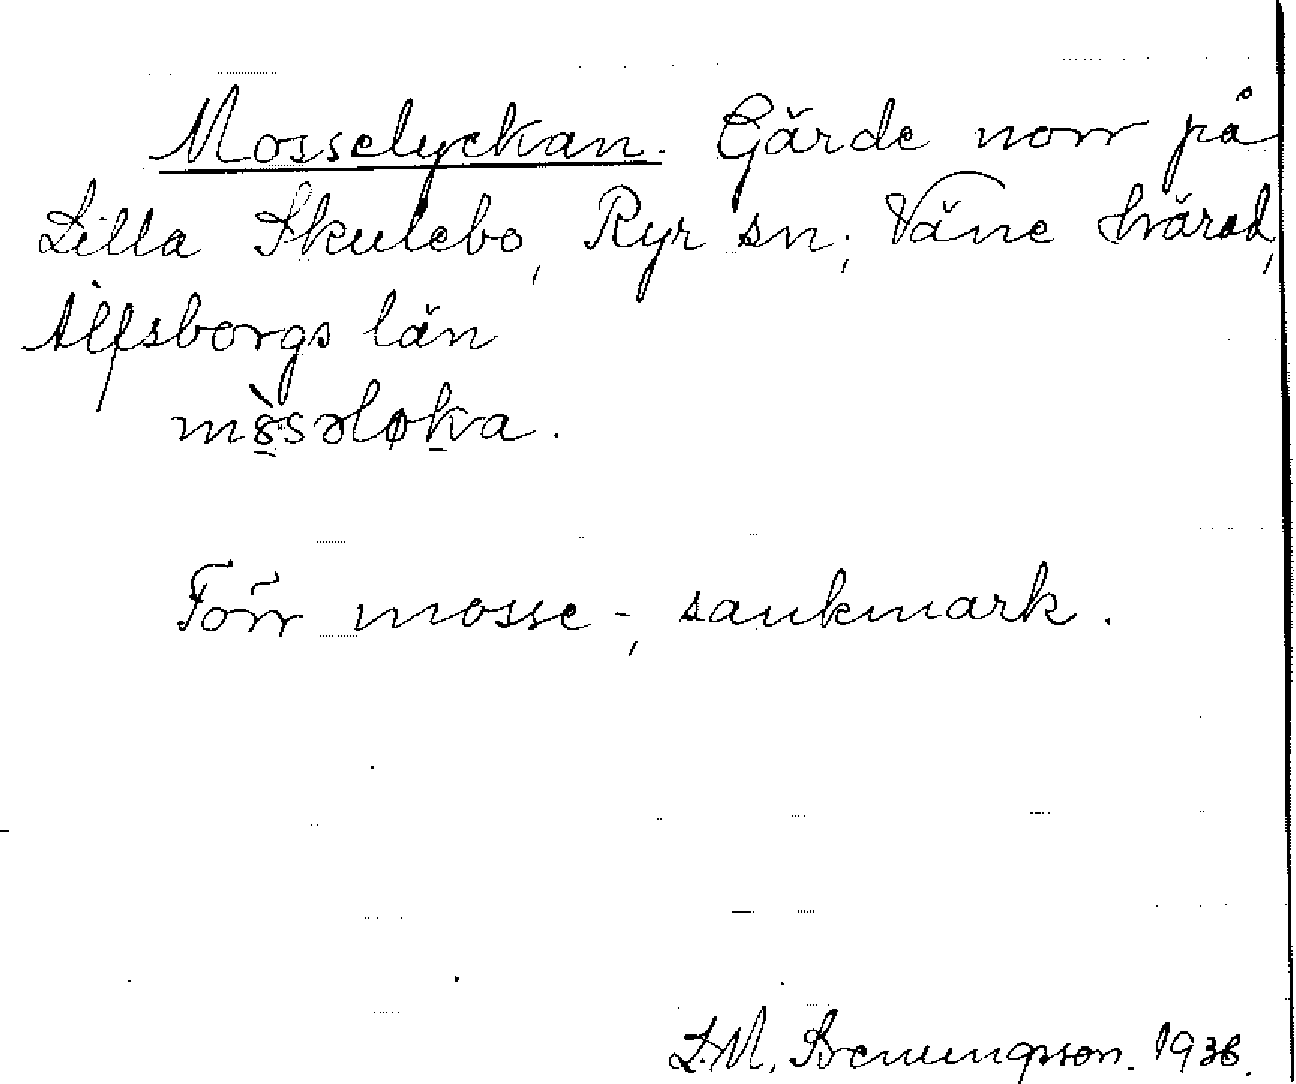 Mosselyckan. Gärde norr på
Lilla Skulebo, Ryr sn, Väne härad,
Älfsborgs län
Förr mosse-, sankmark.
L.M. 1936.